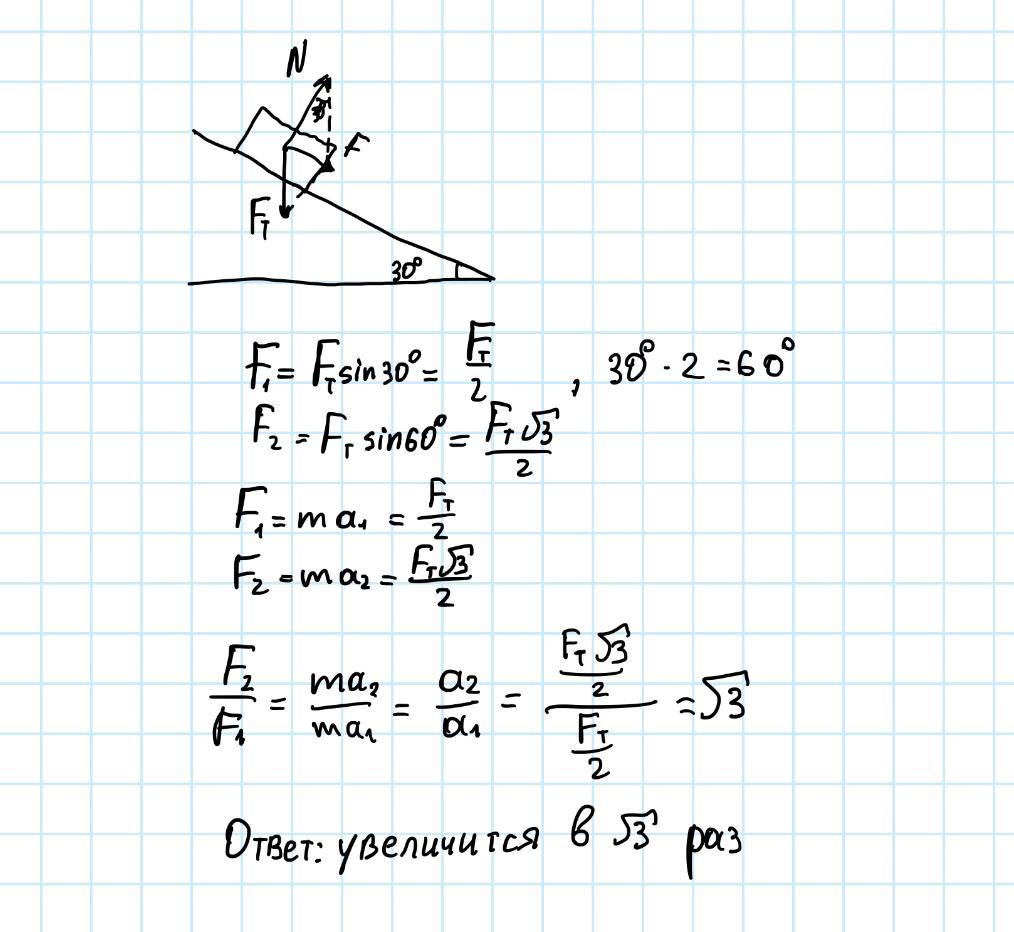 N
F
Fт
30°
F₁ = Fт sin30° = Fт/2 , 30° · 2 = 60°
F₂ = Fт sin60° = Fт√3/2
F₁ = ma₁ = Fт/2
F₂ = ma₂ = Fт√3/2
F₂/F₁ = ma₂/ma₁ = a₂/a₁ = (Fт√3/2)/(Fт/2) = √3
Ответ: увеличится в √3 раз